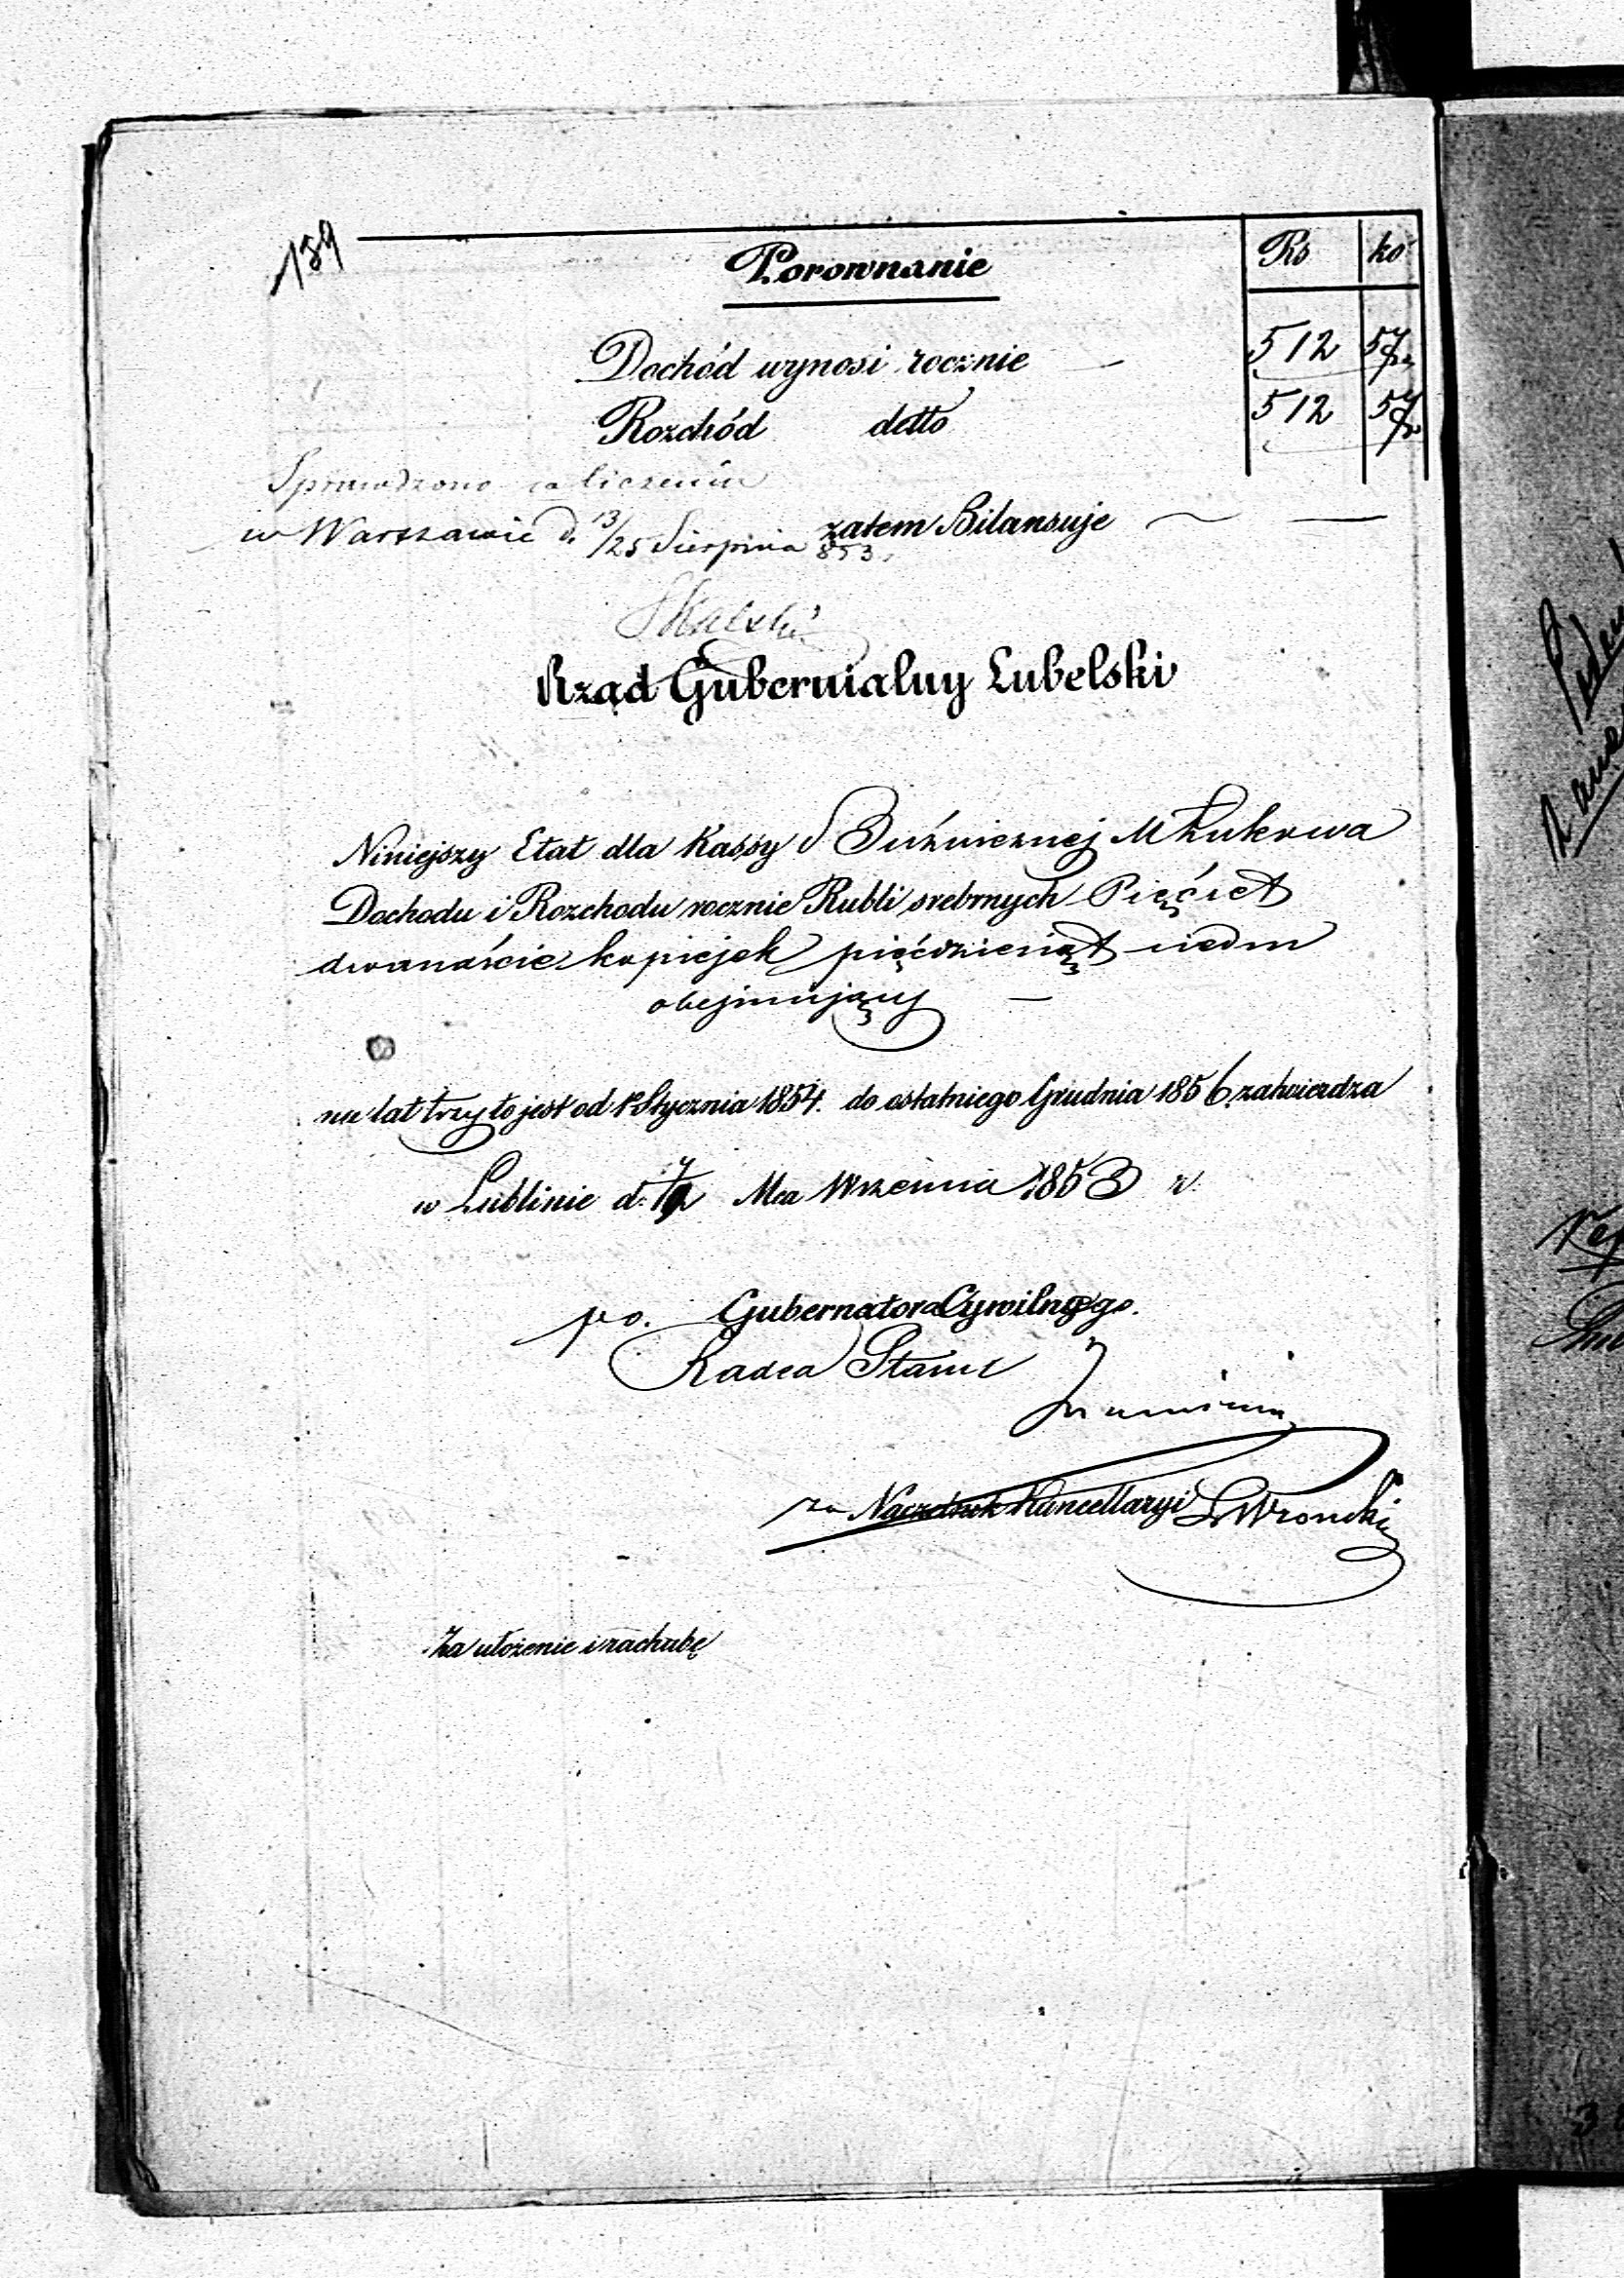 139
Porownanie
Rs ko
Dochód wynosi rocznie — 512 57
Rozchód detto 512 57
Sprawdzono w liczeniu
w Warszawie d. 13/25 Sierpnia 853.
zatem Bilansuje
Rząd Gubernialny Lubelski
Niniejszy Etat dla Kassy Bóżnicznej M Łukowa
Dochodu i Rozchodu rocznie Rubli srebrnych Pięćset
dwanaście kopiejek pięćdziesiąt siedm
obejmujący —
na lat trzy to jest od 1º Stycznia 1854. do ostatniego Grudnia 1856 zatwierdza
w Lublinie d. Mca Września 1853 r.
po. Gubernatora Cywilnego.
Radca Stanu
za Naczelnik Kancellaryi Wronski
Za ułożenie i rachubę